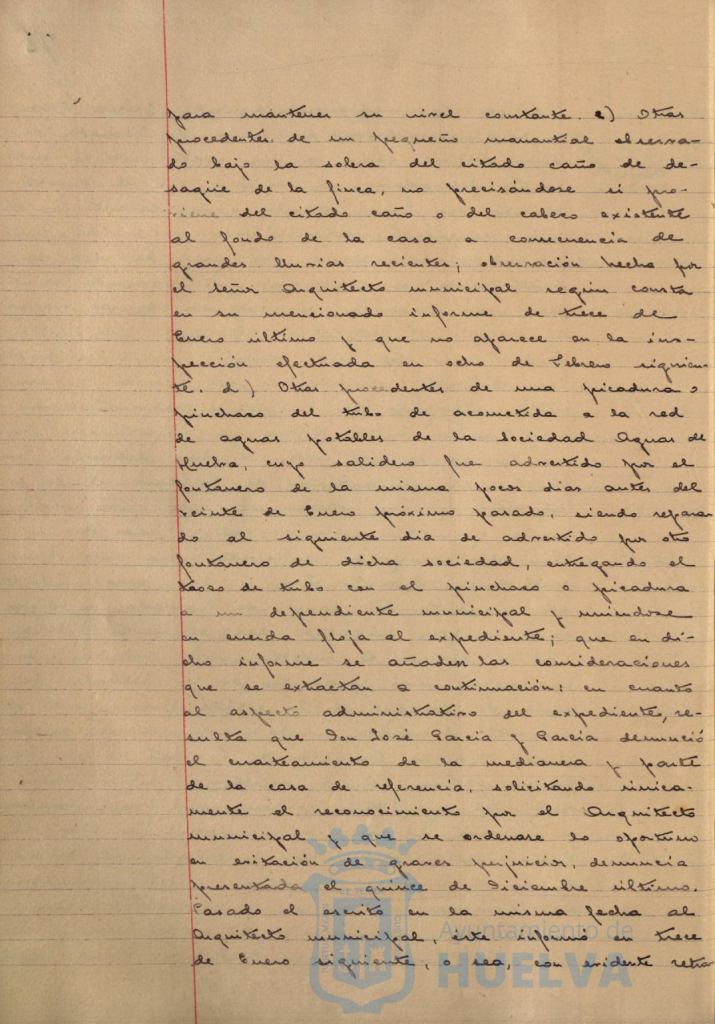 para mantener su nivel constante. c) Otras
procedentes de un pequeño manantial observa-
do bajo la solera del citado caño de de-
sagüe de la finca, no precisándose si pro-
viene del citado caño o del cabezo existente
al fondo de la casa a consecuencia de
grandes lluvias recientes; observación hecha por
el Señor Arquitecto municipal según consta
en su mencionado informe de trece de
Enero último y que no aparece en la ins-
pección efectuada en ocho de Febrero siguien-
te. d) Otras procedentes de una picadura o
pinchazo del tubo de acometida a la red
de aguas potables de la Sociedad Aguas de
Huelva, cuyo salidero fue advertido por el
fontanero de la misma pocos dias antes del
veinte de Enero próximo pasado, siendo repara-
do al siguiente dia de advertido por otro
fontanero de dicha sociedad, entregando el
trozo de tubo con el pinchazo o picadura
a un dependiente municipal y uniendose
en cuerda floja al expediente; que en di-
cho informe se añaden las consideraciones
que se extractan a continuación: en cuanto
al aspecto administrativo del expediente, re-
sulta que Don José Garcia y Garcia denunció
el cuarteamiento de la medianera y parte
de la casa de referencia, solicitando única-
mente el reconocimiento por el Arquitecto
municipal y que se ordenase lo oportuno
en evitación de graves perjuicios, denuncia
presentada el quince de Diciembre último.
Pasado el escrito en la misma fecha al
Arquitecto municipal, este informó en trece
de Enero siguiente, o sea, con evidente retra
Ayuntamiento de
HUELVA